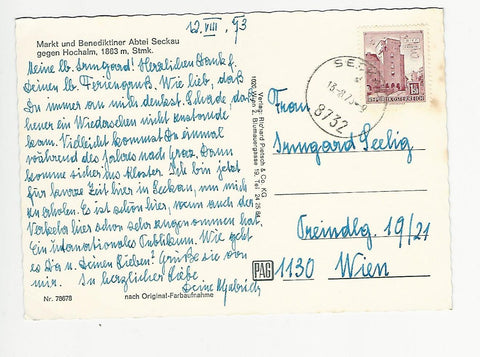 12. VIII. 73
Markt und Benediktiner Abtei Seckau
gegen Hochalm, 1863 m, Stmk.
Meine lb. Irmgard! Herzlichen Dank f.
Deinen lb. Feriengruß. Wie lieb, daß
Du immer an mich denkst. Schade daß
heuer ein Wiedersehen nicht zustande
kam. Vielleicht kommst Du einmal
während des Jahres nach Graz. Dann
komme sicher ins Kloster. Ich bin jetzt
für kurze Zeit hier in Seckau, um mich
zu erholen. Es ist schön hier, wenn auch der
Verkehr hier schon sehr zugenommen hat.
Ein internationales Publikum. Wie geht
es Dir u. Deinen Lieben? Grüße sie von
mir. In herzlicher Liebe
Deine
Nr. 78678
nach Original-Farbaufnahme
Verlag: Richard Pietsch & Co. KG
1020 Wien 2, Blumauergasse 19, Tel. 24 25 84
PAG
8732
REPUBLIK ÖSTERREICH
Frau
Irmgard Seelig
19/21
1130 Wien